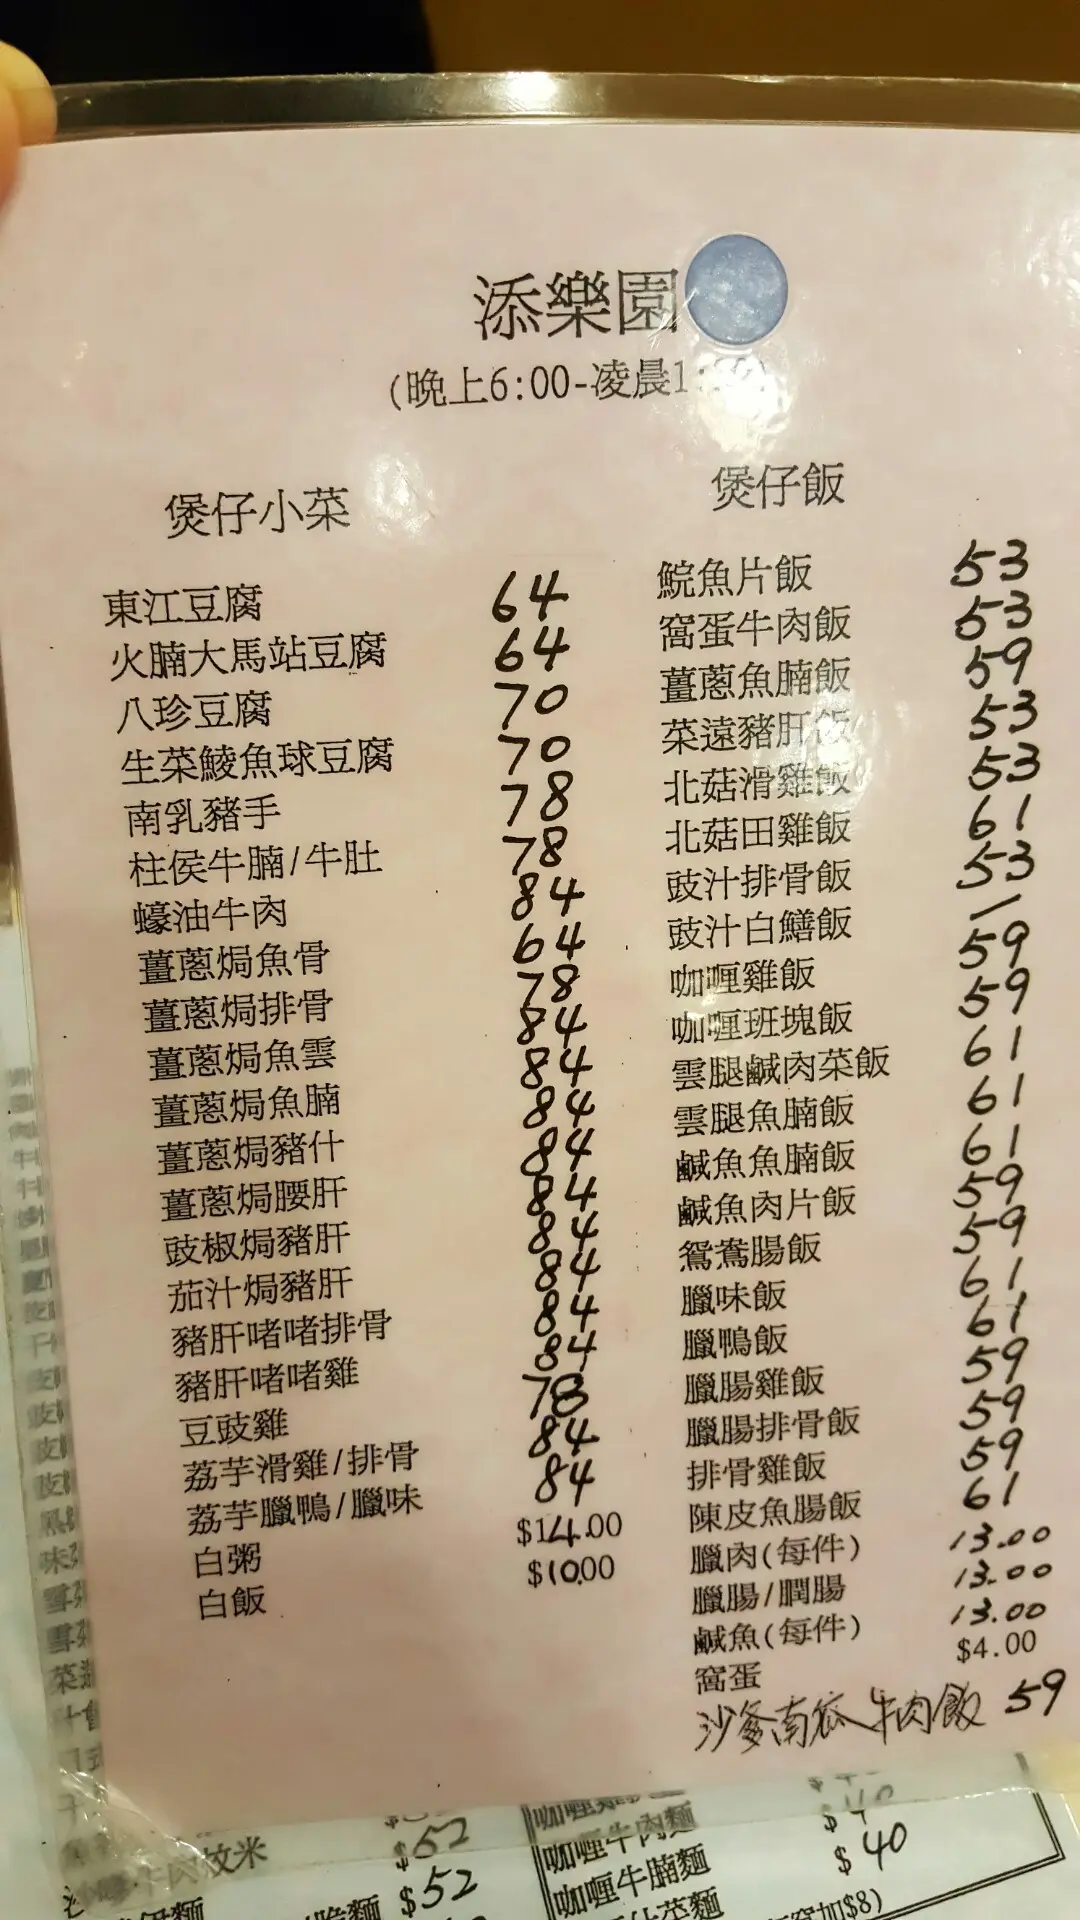 添樂園
(晚上6:00-凌晨1:
煲仔小菜
東江豆腐 64
火腩大馬站豆腐 64
八珍豆腐 70
生菜鯪魚球豆腐 70
南乳豬手 78
柱侯牛腩/牛肚 78
蠔油牛肉 84
薑蔥焗魚骨 64
薑蔥焗排骨 78
薑蔥焗魚雲 84
薑蔥焗魚腩 84
薑蔥焗豬什 84
薑蔥焗腰肝 84
豉椒焗豬肝 84
茄汁焗豬肝 84
豬肝啫啫排骨 84
豬肝啫啫雞 84
豆豉雞 78
荔芋滑雞/排骨 84
荔芋臘鴨/臘味 84
白粥 $14.00
白飯 $10.00
煲仔飯
鯇魚片飯 53
窩蛋牛肉飯 53
薑蔥魚腩飯 59
菜遠豬肝飯 53
北菇滑雞飯 53
北菇田雞飯 61
豉汁排骨飯 53
豉汁白鱔飯 /
咖喱雞飯 59
咖喱班塊飯 59
雲腿鹹肉菜飯 61
雲腿魚腩飯 61
鹹魚魚腩飯 61
鹹魚肉片飯 59
鴛鴦腸飯 59
臘味飯 61
臘鴨飯 61
臘腸雞飯 59
臘腸排骨飯 59
排骨雞飯 59
陳皮魚腸飯 61
臘肉(每件) 13.00
臘腸/膶腸 13.00
鹹魚(每件) 13.00
窩蛋 $4.00
沙爹南瓜牛肉飯 59
$52
$52
咖喱牛肉麵
咖喱牛腩麵 $40
加$8)